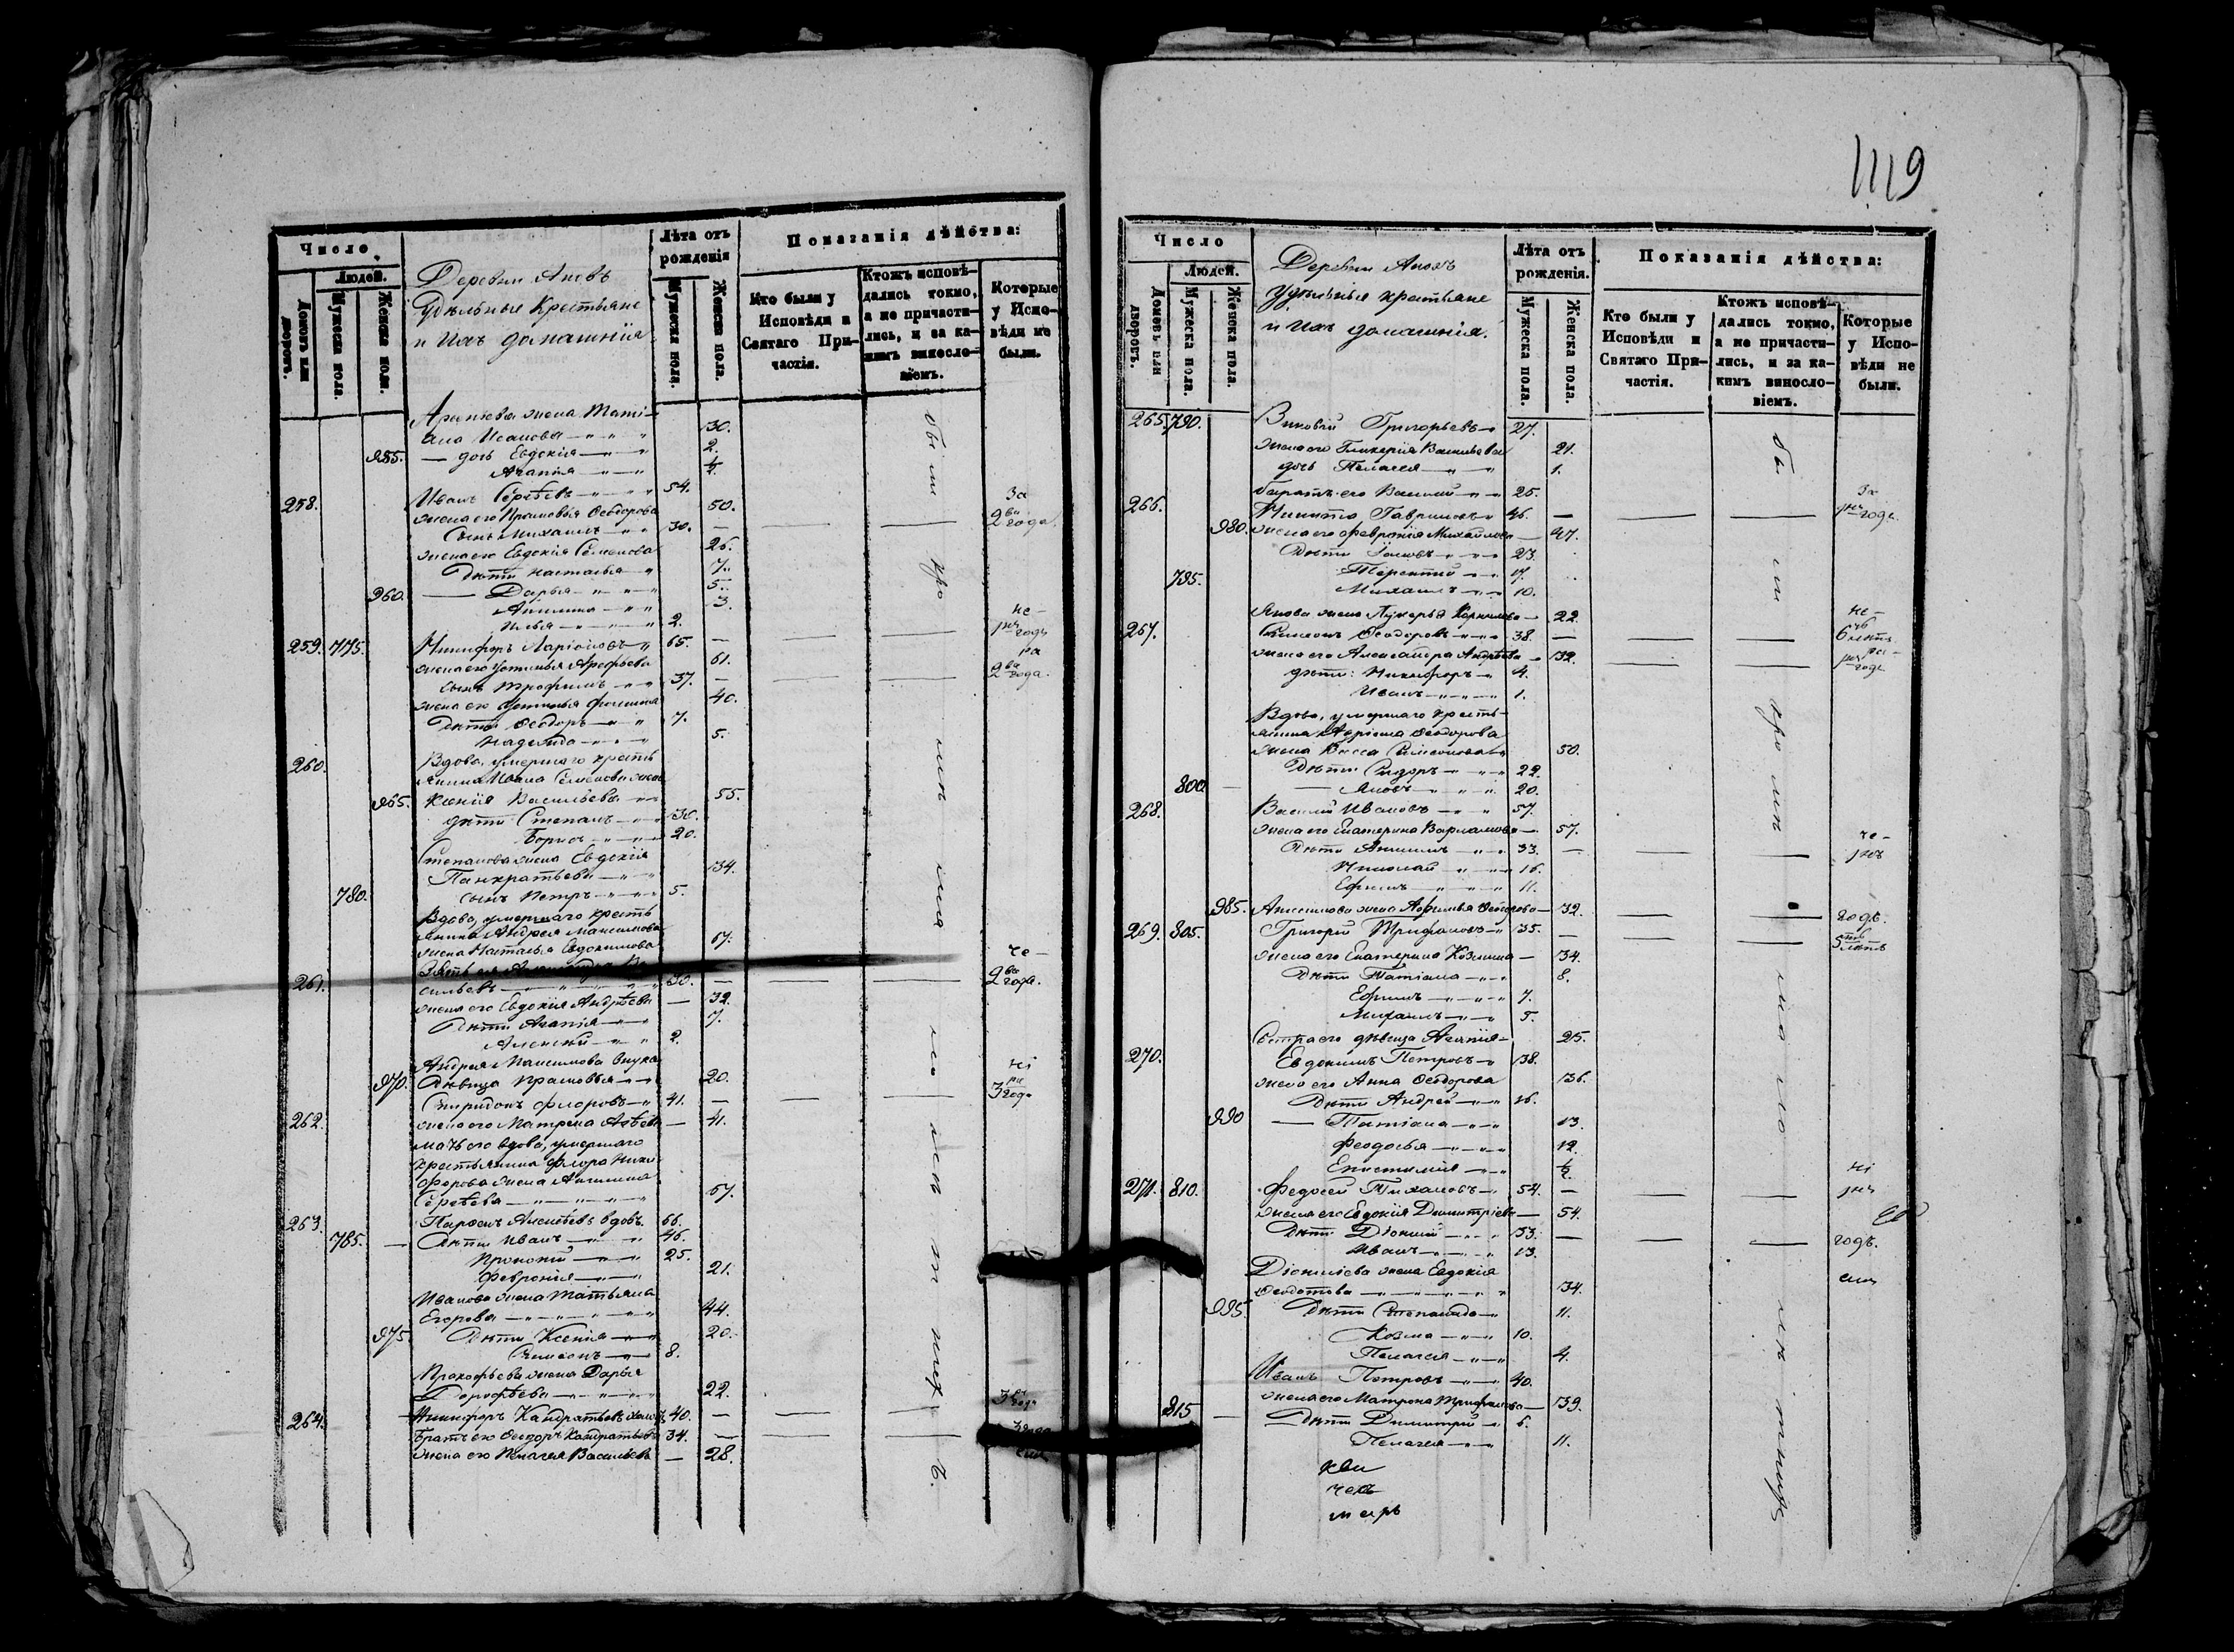 Число
Людей.
Домовъ или дворовъ.
Мужеска пола.
Женска пола.
Деревни Ановъ
Удѣльные Крестьяне
и Ихъ домашнія
Лѣта отъ рожденія
Мужеска пола.
Женска пола.
Показанія дѣйства:
Кто были у Исповѣди и Святаго Причастія.
Ктожъ исповѣдались токмо, а не причастились, и за какимъ винословіемъ.
Которые у Исповѣди не были.
жена Тати-
ана Исакова 30.
955. — дочь Евдокія 2.
Агапія ½.
258. Иванъ Сергѣевъ 54.
жена его Прасковья Ѳеодорова 50.
Сынъ Михаилъ 30. — За 2ва года.
жена его Евдокія Семенова 26.
Дѣти Настасья 7.
960. — Дарья 5.
Акилина 3.
Илья 2.
259. 775. Никифоръ Ларіоновъ 65. — не- годъ
жена его Устинья Арефьева 61.
Сынъ Трофимъ 37. — 2ва года.
жена его Устинья Фомина 40.
Дѣти Ѳеодоръ 7.
Надежда 5.
260. Вдова, умершаго кресть
янина Ивана Семенова жена
965. Ксенія Васильева 55.
дѣти Степанъ 30.
Борисъ 20.
Степанова жена Евдокія
Панкратьева 34.
780. сынъ Петръ 5.
Вдова, умершаго кресть
янина Андрея Максимова
жена Настасья Евдокимова 67.
261. Зять ея Александръ Ва
сильевъ 30. — 2ва года.
жена его Евдокія Андрѣева — 32.
Дѣти Агапія 7.
Алексѣй 2.
Андрея Максимова внука
970. Дѣвица Прасковья 20.
262. Спиридонъ Флоровъ 41. — 3ри года
жена его Матрена — 41.
мать его вдова, умершаго
крестьянина Флора Ники
форова жена Акилина
Сергѣева 67.
263. Парѳенъ Алексѣевъ вдовъ. 66.
785. — Дѣти Иванъ 46.
Прокопій 25.
Феврония 21.
Иванова жена Татьяна
Егорова 44.
975. Дѣти Ксенія 20.
Симеонъ 8.
Прокофьева жена Дарья
Дорофѣева 22.
264. Никифоръ Кандратьевъ 40. —
Братъ его Ѳеодоръ Кандратьевъ 34. —
жена его Пелагея Васильева — 28.
1119
Число
Людей.
Домовъ или дворовъ.
Мужеска пола.
Женска пола.
Деревни Ановъ
Удѣльныя крестьяне
и Ихъ домашнія.
Лѣта отъ рожденія.
Мужеска пола.
Женска пола.
Показанія дѣйства:
Кто были у Исповѣди и Святаго Причастія.
Ктожъ исповѣдались токмо, а не причастились, и за какимъ винословіемъ.
Которые у Исповѣди не были.
265. 790. Григорьевъ 27.
жена его Гликерія Васильева 21.
дочь Пелагея 1.
братъ его Василій 25.
266. Никита Гавриловъ 46. — За годъ.
980. жена его Февронія Михайлова — 47.
Дѣти Іаковъ 23.
795. Терентій 17.
Михаилъ 10.
Якова жена Лукерья Корнилова — 22.
267. Симеонъ Ѳеодоровъ 38. — 6 лѣтъ
жена его Александра Андрѣева 32. годъ
дѣти: Никифоръ 4.
Иванъ 1.
Вдова, умершаго кресть-
янина Ѳеодорова
жена Васса Симеонова 50.
Дѣти Сидоръ 22.
800. — Яковъ 20.
268. Василій Ивановъ 57.
жена его Екатерина Варламова — 57.
Дѣти Анисимъ 33. —
Николай 16.
Ефимъ 11.
985. Анисимова жена Афимья Ѳеодорова — 32. годъ.
269. 805. Григорій Трифановъ 35. — 5ть лѣтъ
жена его Екатерина Козмина — 34.
Дѣти Татіана 8.
Ефимъ 7.
Михаилъ 5.
Сестра его дѣвица 25.
270. Евдокимъ Петровъ 38.
жена его Анна Ѳеодорова 36.
Дѣти Андрей 16.
990 — Татіана 13.
Феодосья 12.
Епистимія ½.
271. 810. Федосей Тихановъ 54. —
жена его Евдокія Димитріева — 54.
Дѣти Діонисій 33. — годъ.
Иванъ 13.
Діонисіева жена Евдокія
Ѳеодотова 34.
995. Дѣти Степанида 11.
Козма 10.
Пелагея 4.
Иванъ Петровъ 40.
жена его Матрона Трифанова — 39.
815 — Дѣти Димитрій 6.
Пелагея 11.